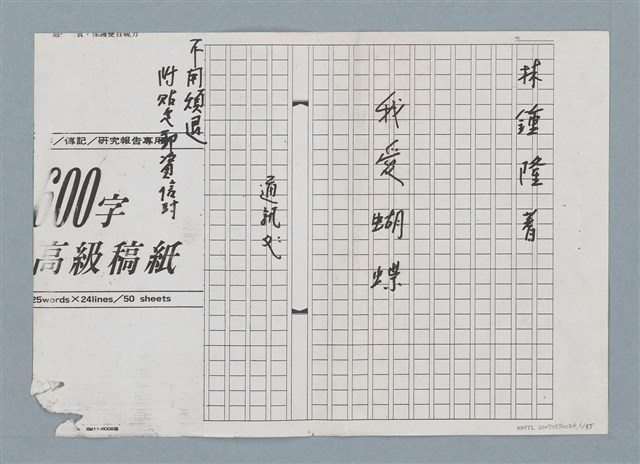 林鍾隆著
我愛蝴蝶
通訊処
不用煩退
附貼足郵資信封
／傳記／研究報告專用
600字
高級稿紙
25words×24lines／50 sheets
NMTL 20070530024, 1/35